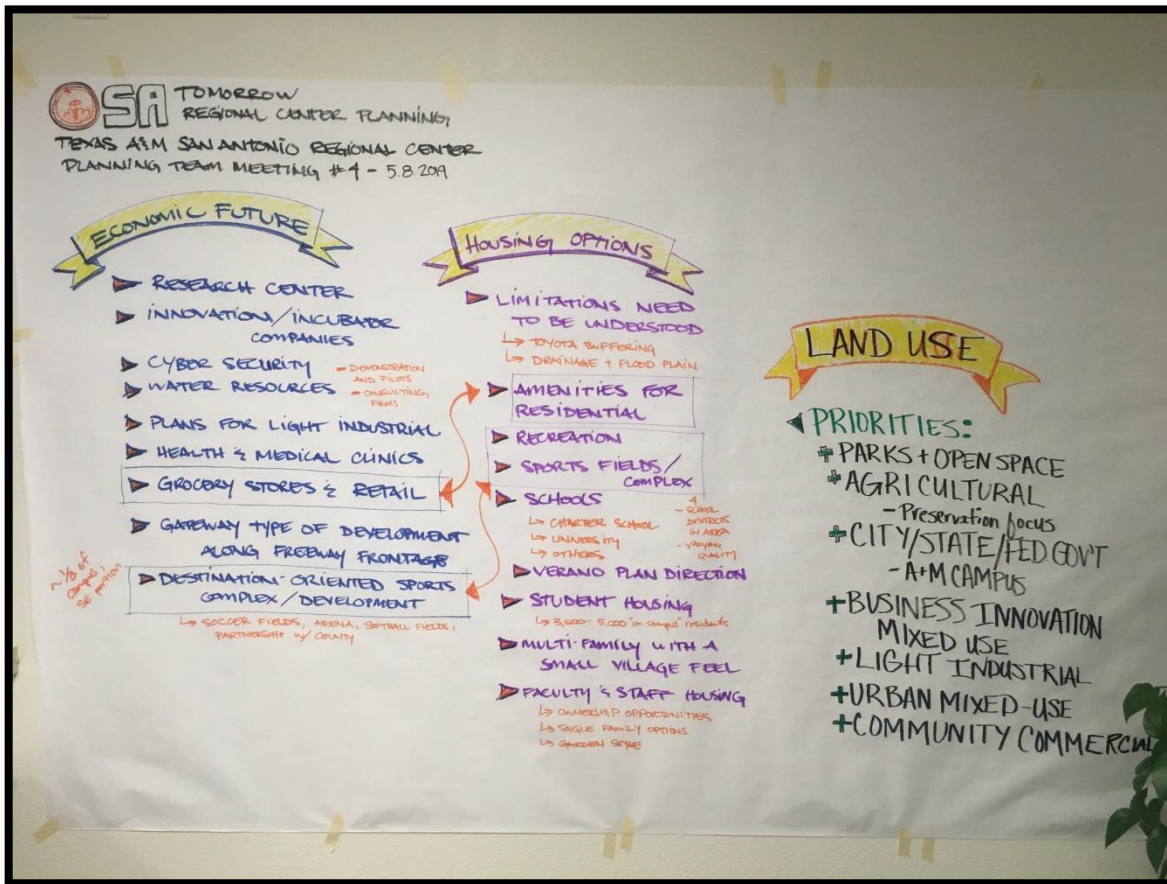 SA TOMORROW
REGIONAL CENTER PLANNING
TEXAS A&M SAN ANTONIO REGIONAL CENTER
PLANNING TEAM MEETING #4 - 5.8.2019
ECONOMIC FUTURE
RESEARCH CENTER
INNOVATION/INCUBATOR
COMPANIES
CYBER SECURITY
WATER RESOURCES
- DEMONSTRATION
AND PILOTS
- CONSULTING
FIRMS
PLANS FOR LIGHT INDUSTRIAL
HEALTH & MEDICAL CLINICS
GROCERY STORES & RETAIL
GATEWAY TYPE OF DEVELOPMENT
ALONG FREEWAY FRONTAGE
~ 1/3 of
campus,
SE portion
DESTINATION-ORIENTED SPORTS
COMPLEX/DEVELOPMENT
↳ SOCCER FIELDS, ARENA, SOFTBALL FIELDS,
PARTNERSHIP W/ COUNTY
HOUSING OPTIONS
LIMITATIONS NEED
TO BE UNDERSTOOD
↳ TOYOTA BUFFERING
↳ DRAINAGE & FLOOD PLAIN
AMENITIES FOR
RESIDENTIAL
RECREATION
SPORTS FIELDS/
COMPLEX
SCHOOLS
↳ CHARTER SCHOOL
↳ UNIVERSITY
↳ OTHERS
4
- SCHOOL
DISTRICTS
IN AREA
- VARYING
QUALITY
VERANO PLAN DIRECTION
STUDENT HOUSING
↳ 3,500 - 5,000 on campus residents
MULTI-FAMILY WITH A
SMALL VILLAGE FEEL
FACULTY & STAFF HOUSING
↳ OWNERSHIP OPPORTUNITIES
↳ SINGLE FAMILY OPTIONS
↳ GARDEN STYLE
LAND USE
PRIORITIES:
+ PARKS + OPEN SPACE
+ AGRICULTURAL
- Preservation focus
+ CITY/STATE/FED GOV'T
- A+M CAMPUS
+ BUSINESS INNOVATION
MIXED USE
+ LIGHT INDUSTRIAL
+ URBAN MIXED-USE
+ COMMUNITY COMMERCIAL